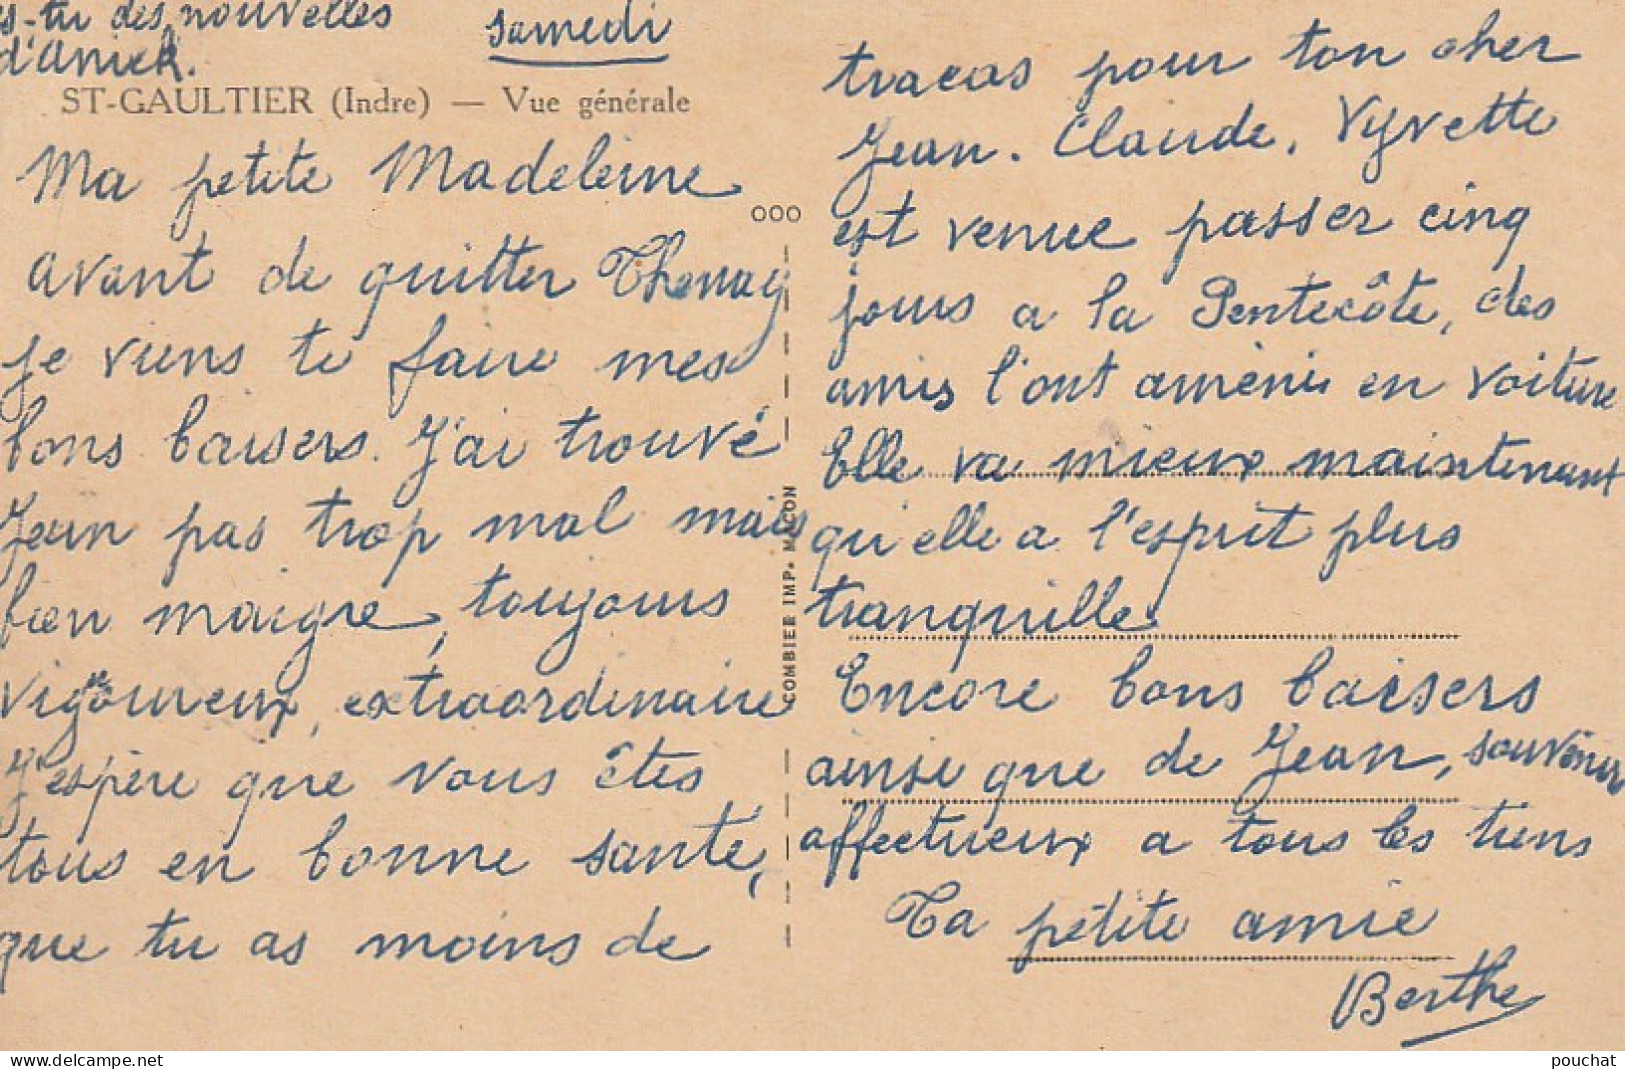 es-tu des nouvelles
d'Anick.
samedi
ST-GAULTIER (Indre) — Vue générale
Ma petite Madeleine
avant de quitter Thenay
je viens te faire mes
bons baisers. J'ai trouvé
Jean pas trop mal mais
bien maigre, toujours
vigoureux, extraordinaire
J'espère que vous êtes
tous en bonne santé,
que tu as moins de
000
COMBIER IMP. MACON
tracas pour ton cher
Jean. Claude. Vyvette
est venue passer cinq
jours a la Pentecôte, des
amis l'ont amènée en voiture
Elle va mieux maintenant
qu'elle a l'esprit plus
tranquille.
Encore bons baisers
ainsi que de Jean, souvenir
affectueux a tous les tiens
Ta pétite amie
Berthe
www.delcampe.net
pouchat